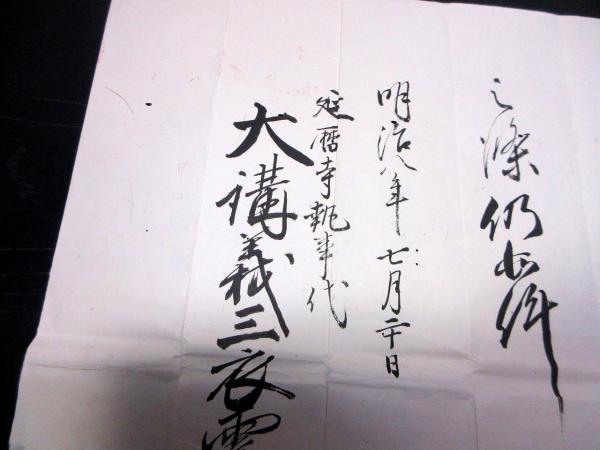 之條仍如件
明治八年七月二十日
延暦寺執事代
大講義三衣雲